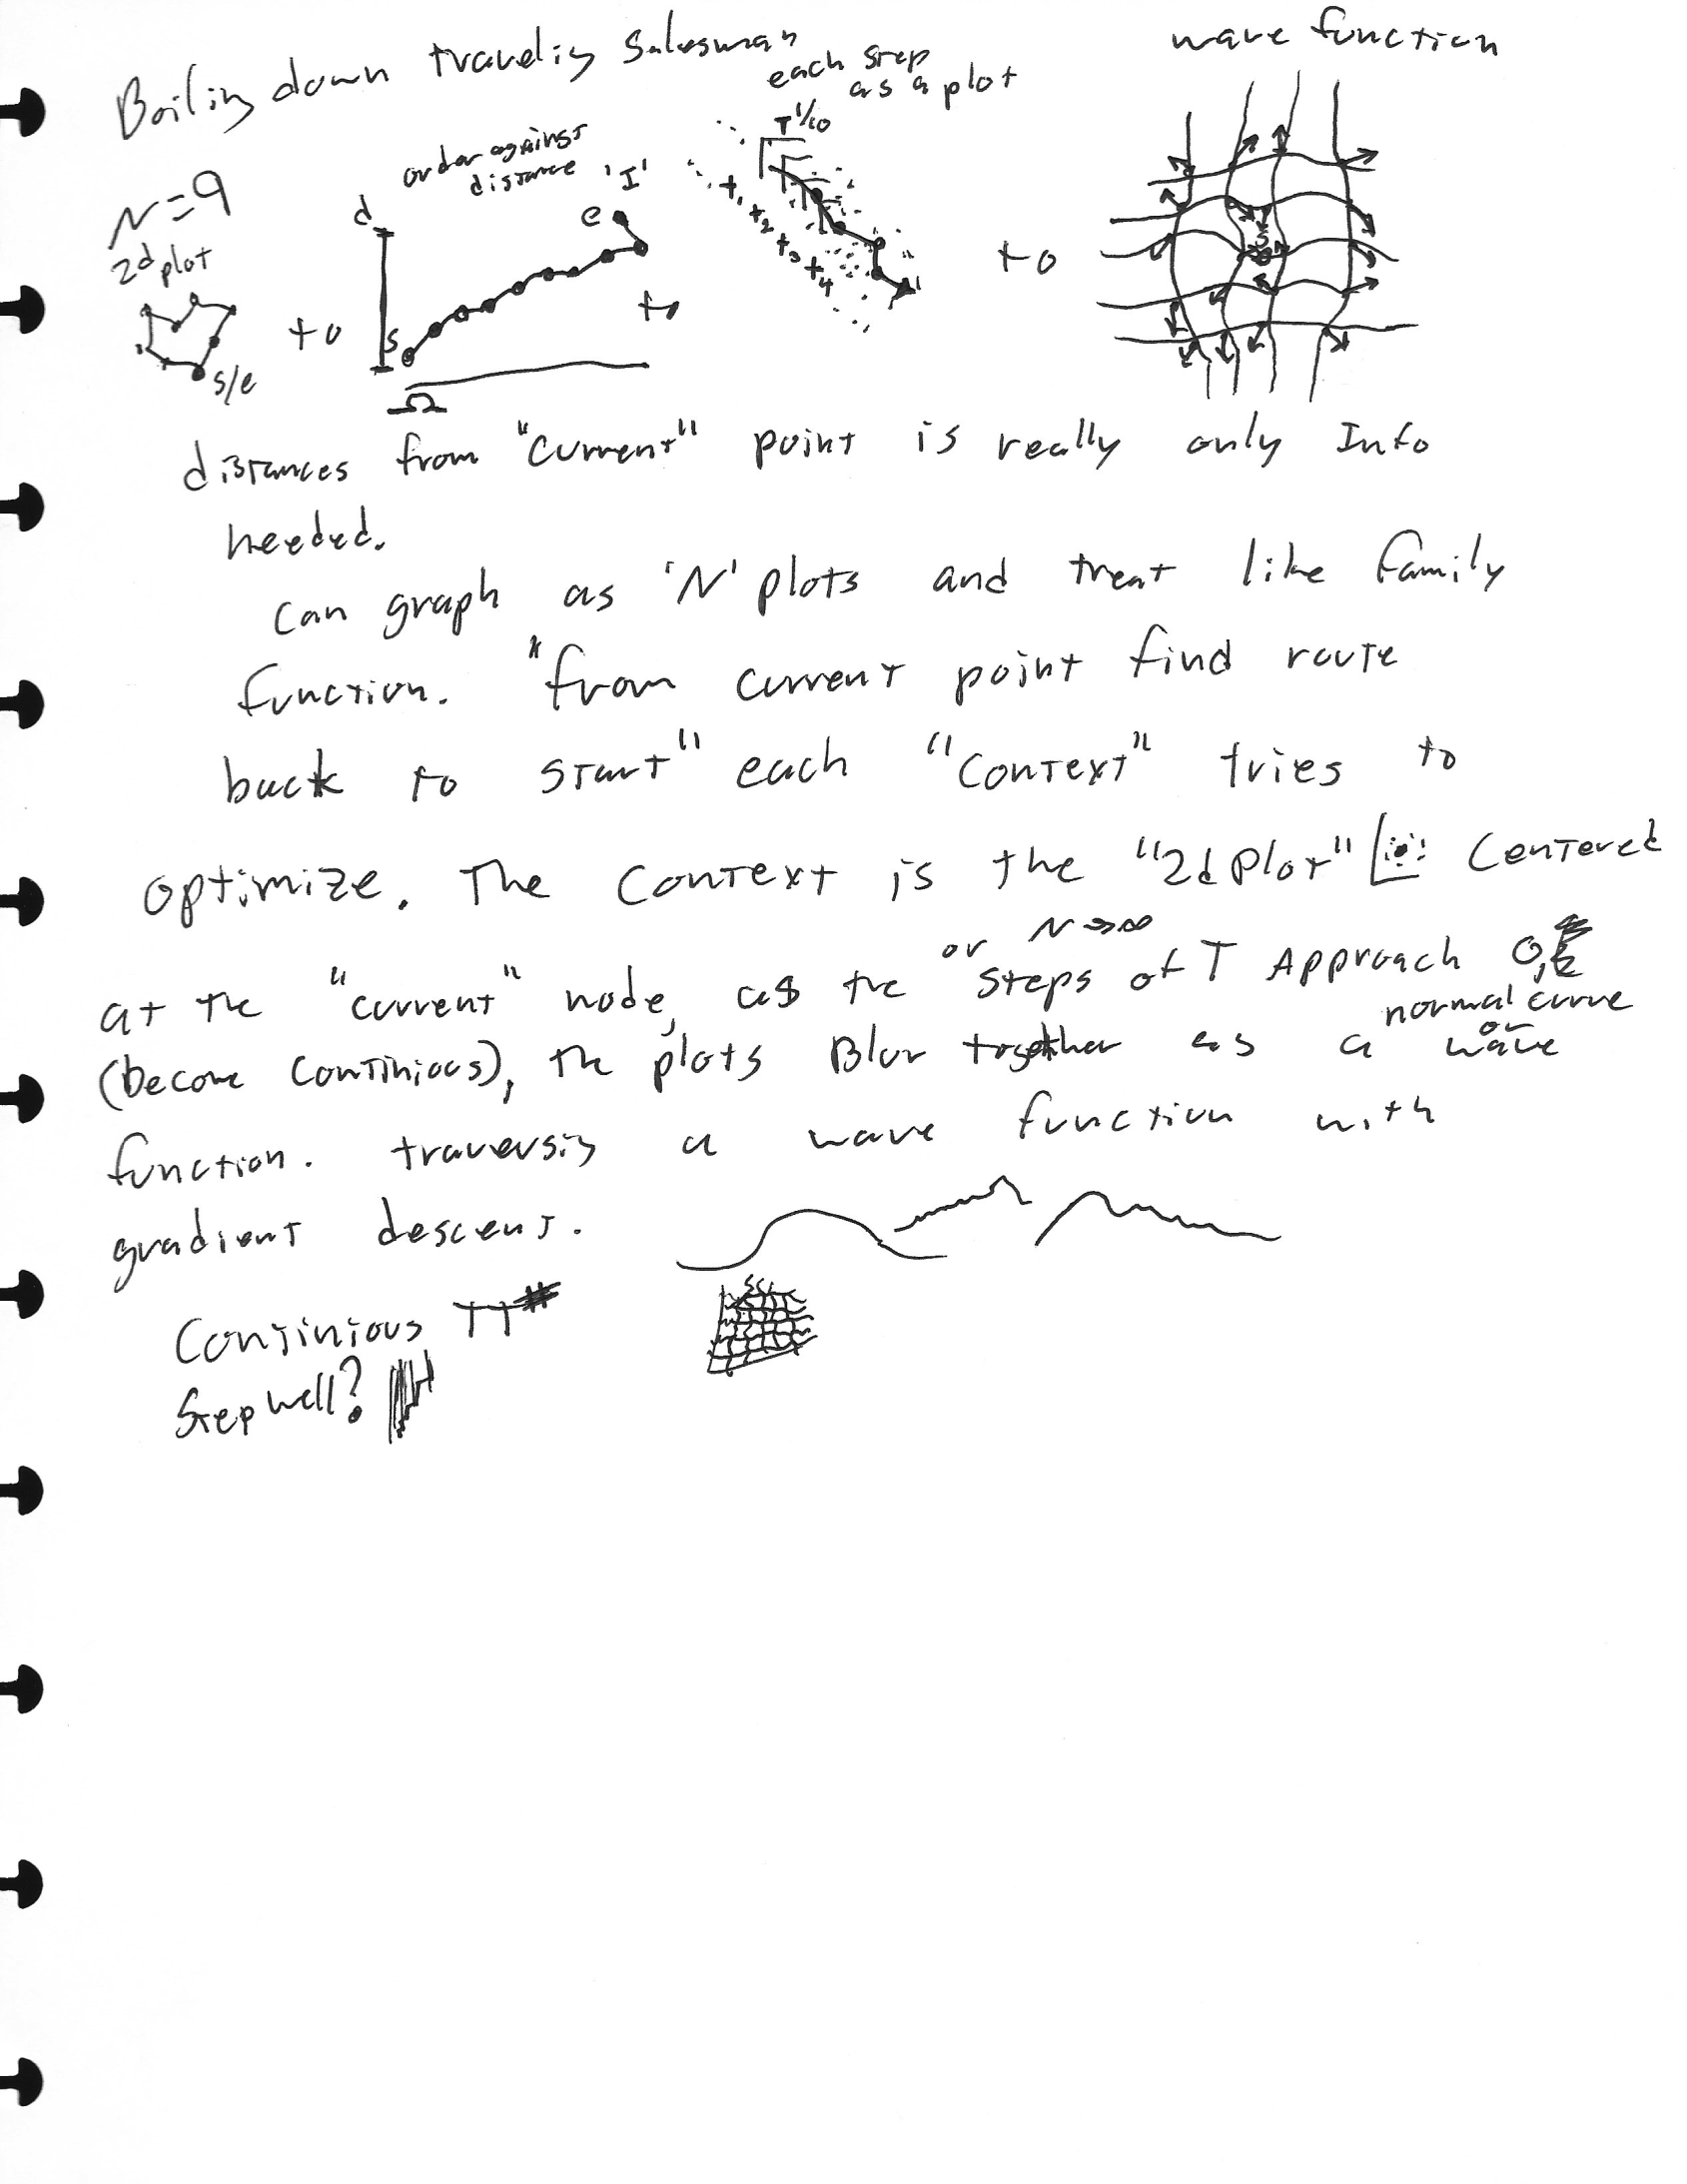 Boiling down traveling Salesman
each step
as a plot
wave function
N=9
2d plot
s/e
to
order against
distance 'I'
d
s
e
Ω
to
T 1/10
t1 t2 t3 t4
to
distances from "current" point is really only Info
needed.
Can graph as 'N' plots and treat like family
function. "from current point find route
back to start" each "Context" tries to
optimize. The Context is the "2d Plot" Centered
or N→∞
at the "current" node, as the steps of T Approach 0,
normal curve
or
(become Continious), the plots Blur together as a wave
function. traversing a wave function with
gradient descent.
Continious TT#
Step well?